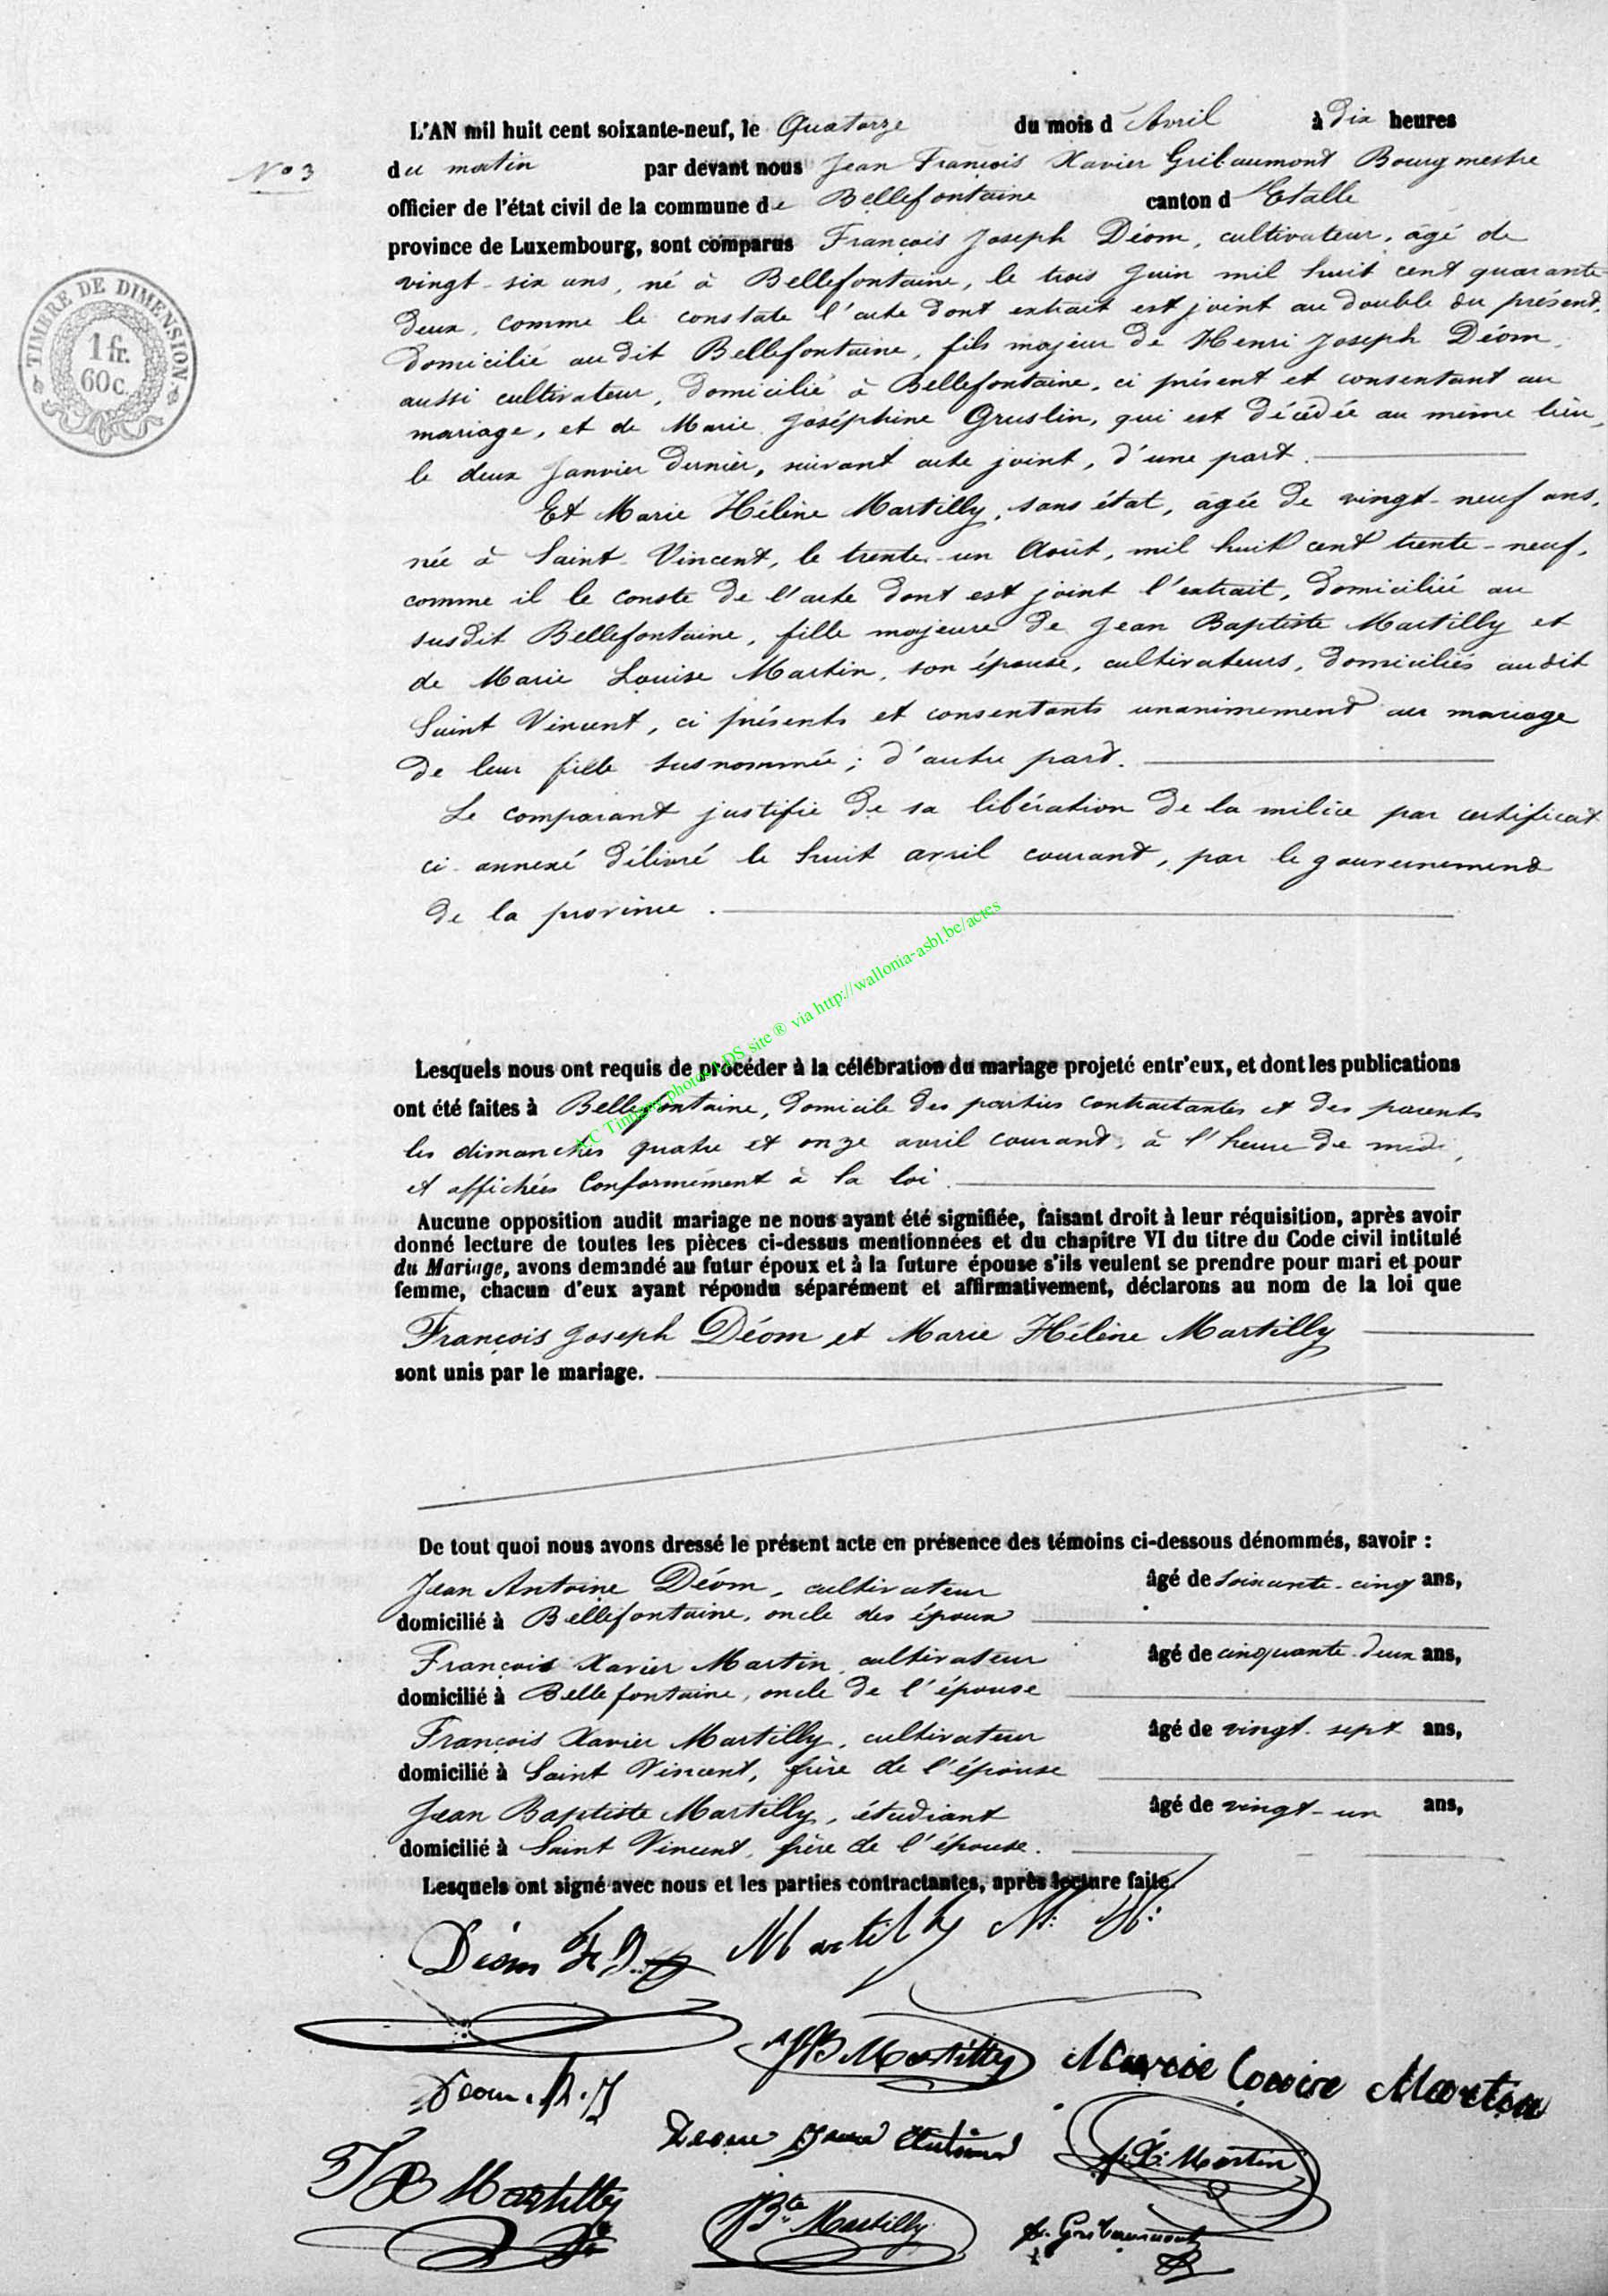 L'AN mil huit cent soixante-neuf, le Quatorze du mois d'Avril à Dix heures
N° 3
du matin par devant nous Jean François Xavier Gribaumont Bourgmestre
officier de l'état civil de la commune de Bellefontaine canton d'Etalle
province de Luxembourg, sont comparus François Joseph Déom, cultivateur, âgé de
vingt-six ans, né à Bellefontaine, le trois Juin mil huit cent quarante-
TIMBRE DE DIMENSION
1 fr.
60 c.
deux, comme le constate l'acte dont extrait est joint au double du présent,
domicilié au dit Bellefontaine, fils majeur de Henri Joseph Déom,
aussi cultivateur, domicilié à Bellefontaine, ci présent et consentant au
mariage, et de Marie Joséphine Gruslin, qui est décédée au même lieu,
le deux Janvier dernier, suivant acte joint, d'une part.
Et Marie Hélène Martilly, sans état, âgée de vingt-neuf ans,
née à Saint-Vincent, le trente-un Août, mil huit cent trente-neuf,
comme il le conste de l'acte dont est joint l'extrait, domiciliée au
susdit Bellefontaine, fille majeure de Jean Baptiste Martilly et
de Marie Louise Martin, son épouse, cultivateurs, domiciliés audit
Saint Vincent, ci présents et consentants unanimement au mariage
de leur fille susnommée; d'autre part.
Le comparant justifie de sa libération de la milice par certificat
ci-annexé délivré le huit avril courant, par le gouvernement
de la province.
A.C Tintigny photos LDS site ® via http://wallonia-asbl.be/actes
Lesquels nous ont requis de procéder à la célébration du mariage projeté entr'eux, et dont les publications
ont été faites à Bellefontaine, domicile des parties contractantes et des parents
les dimanches quatre et onze avril courant, à l'heure de midi,
et affichées conformément à la loi.
Aucune opposition audit mariage ne nous ayant été signifiée, faisant droit à leur réquisition, après avoir
donné lecture de toutes les pièces ci-dessus mentionnées et du chapitre VI du titre du Code civil intitulé
du Mariage, avons demandé au futur époux et à la future épouse s'ils veulent se prendre pour mari et pour
femme, chacun d'eux ayant répondu séparément et affirmativement, déclarons au nom de la loi que
François Joseph Déom et Marie Hélène Martilly
sont unis par le mariage.
De tout quoi nous avons dressé le présent acte en présence des témoins ci-dessous dénommés, savoir :
Jean Antoine Déom, cultivateur âgé de soixante-cinq ans,
domicilié à Bellefontaine, oncle des époux
François Xavier Martin, cultivateur âgé de cinquante-deux ans,
domicilié à Bellefontaine, oncle de l'épouse
François Xavier Martilly, cultivateur âgé de vingt-sept ans,
domicilié à Saint Vincent, frère de l'épouse
Jean Baptiste Martilly, étudiant âgé de vingt-un ans,
domicilié à Saint Vincent, frère de l'épouse.
Lesquels ont signé avec nous et les parties contractantes, après lecture faite.
Déom F. J. Martilly M: H:
JB Martilly Marie Louise Martin
Deom. H. J
Deom Jean Antoine f. X: Martin
F X Martilly
JBte Martilly f. Gribaumont